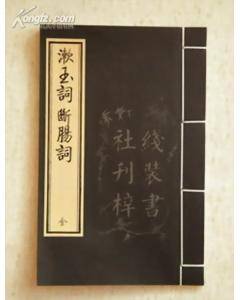 Kongfz.com
漱玉詞 斷腸詞
全
綫裝書
社刊梓